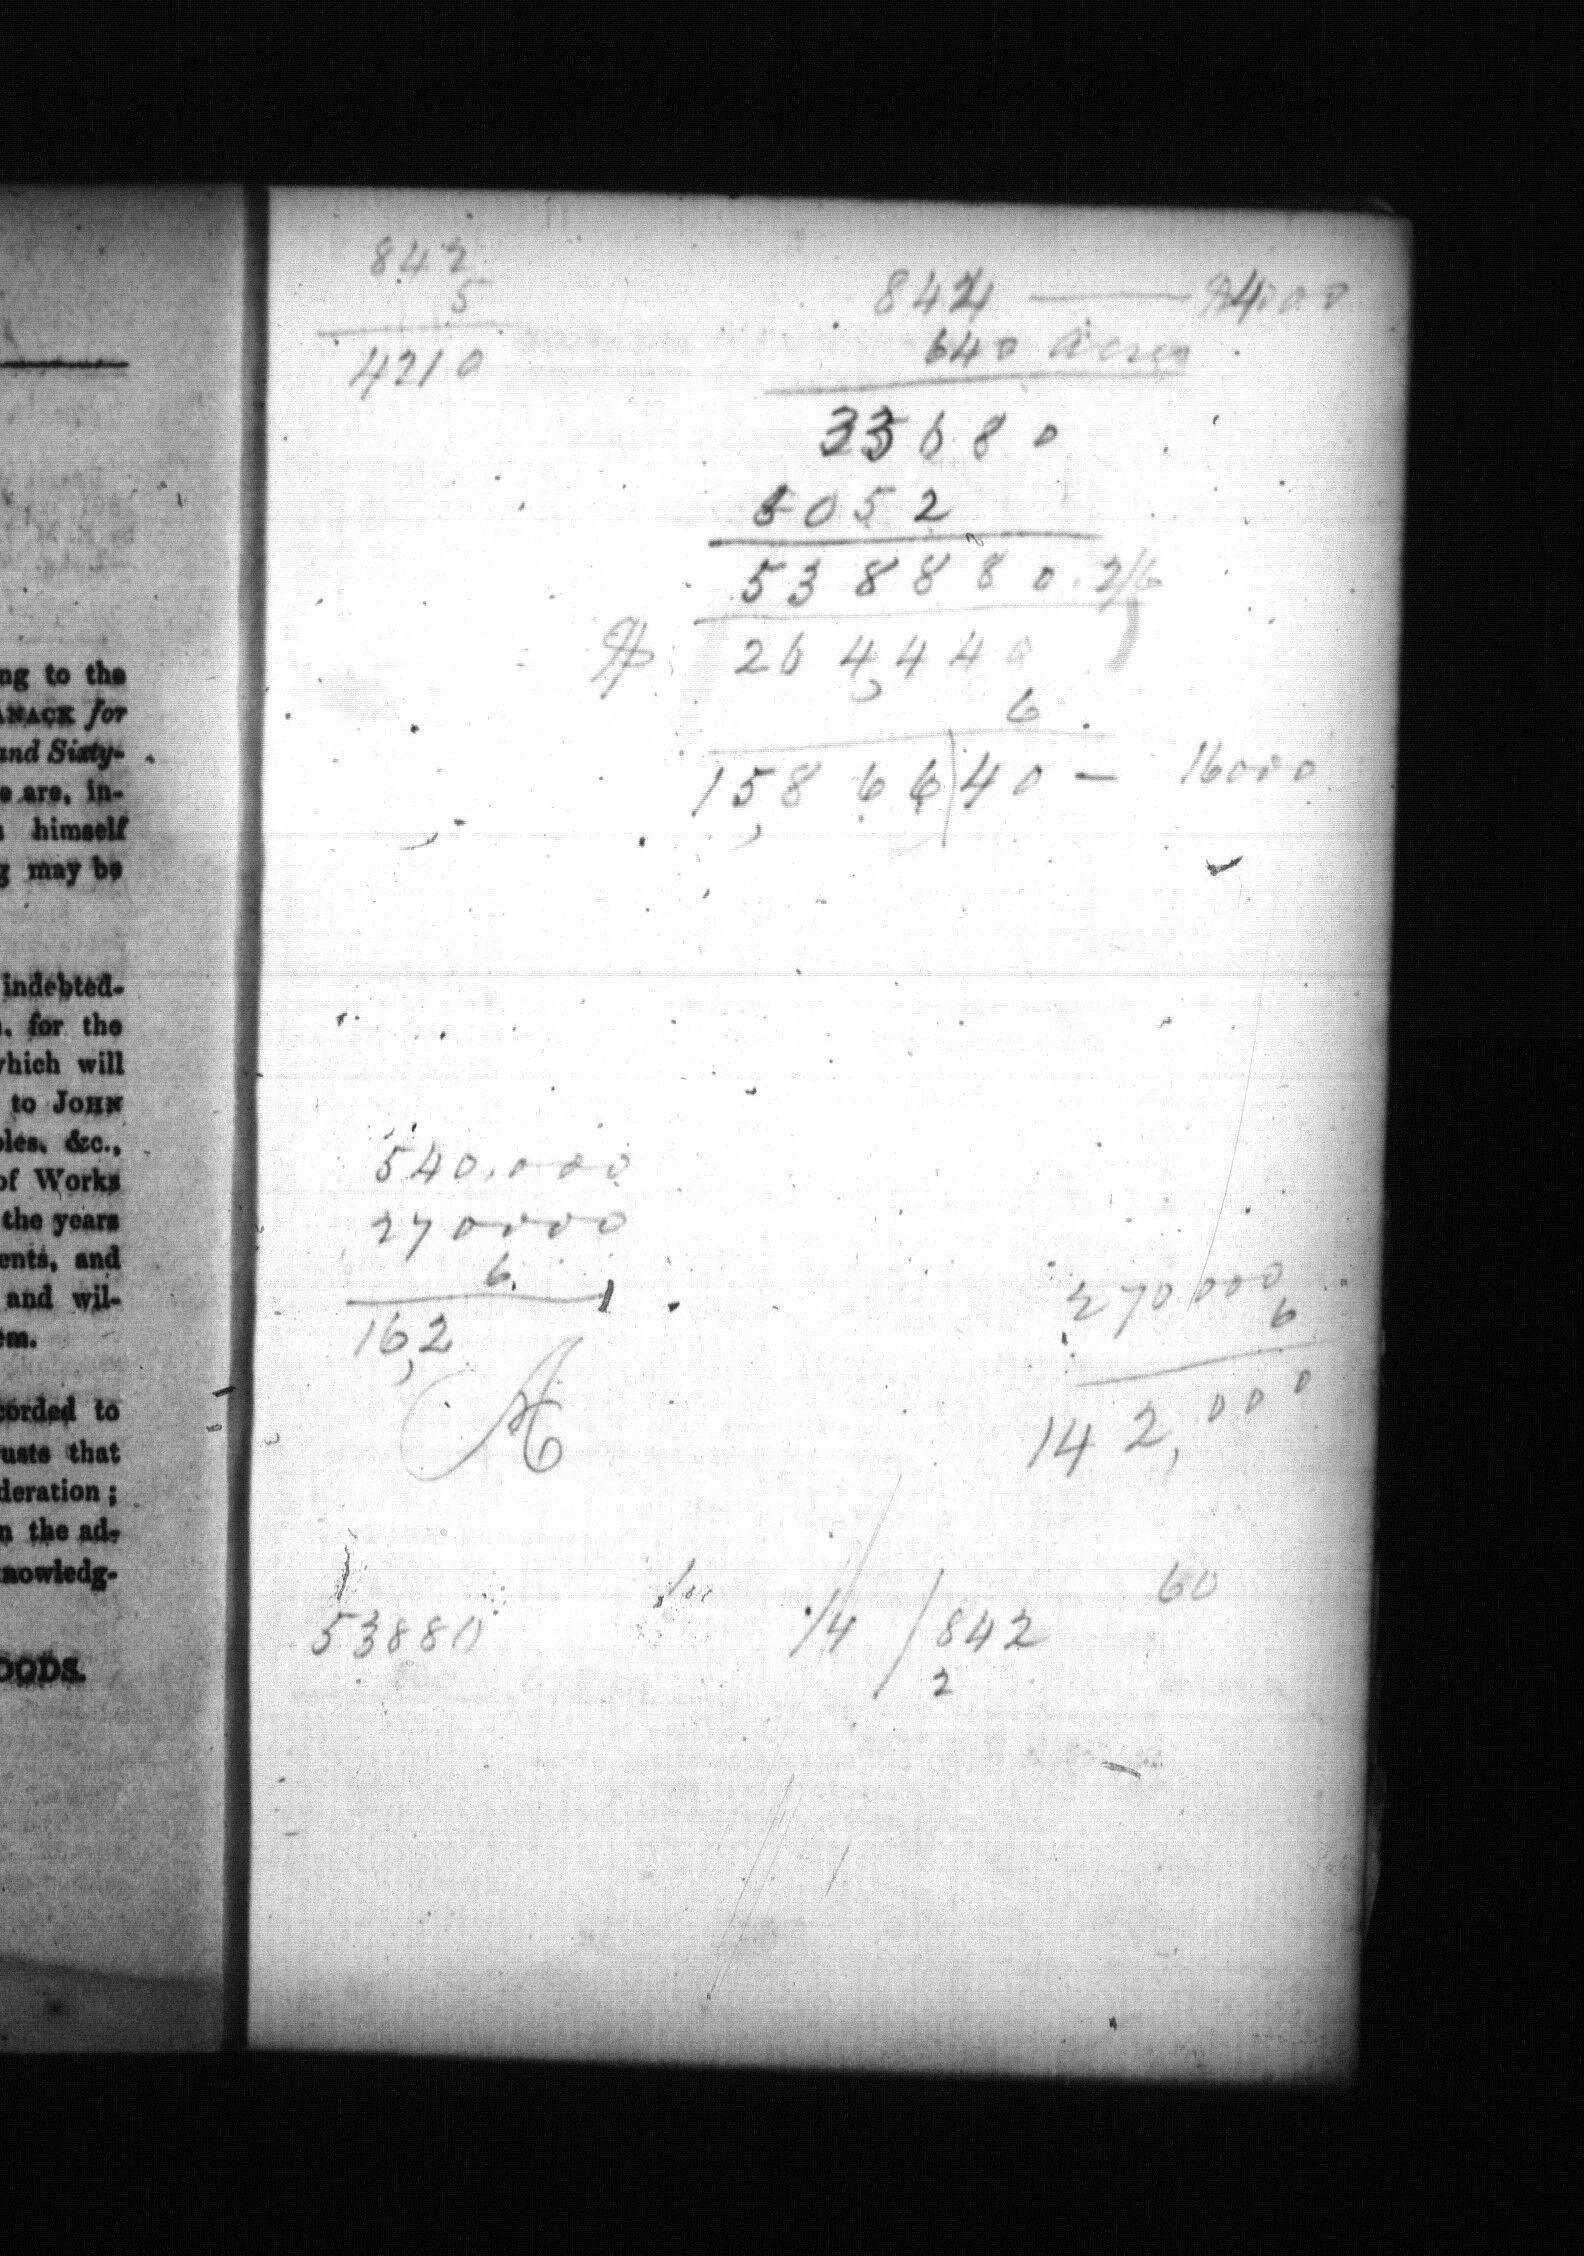 ng to the
ANACK for
and Sixty-
e are, in-
s himself
g may be
indebted-
n, for the
which will
to JOHN
bles, &c.,
of Works
the years
ents, and
and wil-
em.
corded to
rusts that
deration ;
n the ad-
knowledg-
OODS.
842
5
4210
842 — 84000
640 acres
33680
5052
538880 2/6
264440
6
158,66|40 — 16000
540.000
270000
6
16,2
270000
6
142,000
53880
14 / 842
2
60